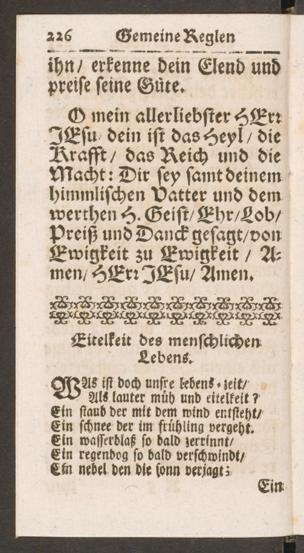 226 Gemeine Reglen
ihn/ erkenne dein Elend und
preise seine Güte.
O mein allerliebster HErr
JEsu/ dein ist das Heyl/ die
Krafft/ das Reich und die
Macht: Dir sey samt deinem
himmlischen Vatter und dem
werthen H. Geist/ Ehr/ Lob/
Preiß und Danck gesagt/ von
Ewigkeit zu Ewigkeit / A-
men/ HErr JEsu/ Amen.
Eitelkeit des menschlichen
Lebens.
WAs ist doch unsre lebens-zeit/
Als lauter müh und eitelkeit?
Ein staub der mit dem wind entsteht/
Ein schnee der im frühling vergeht.
Ein wasserblaß so bald zerrinnt/
Ein regenbog so bald verschwindt/
Ein nebel den die sonn verjagt;
Ein